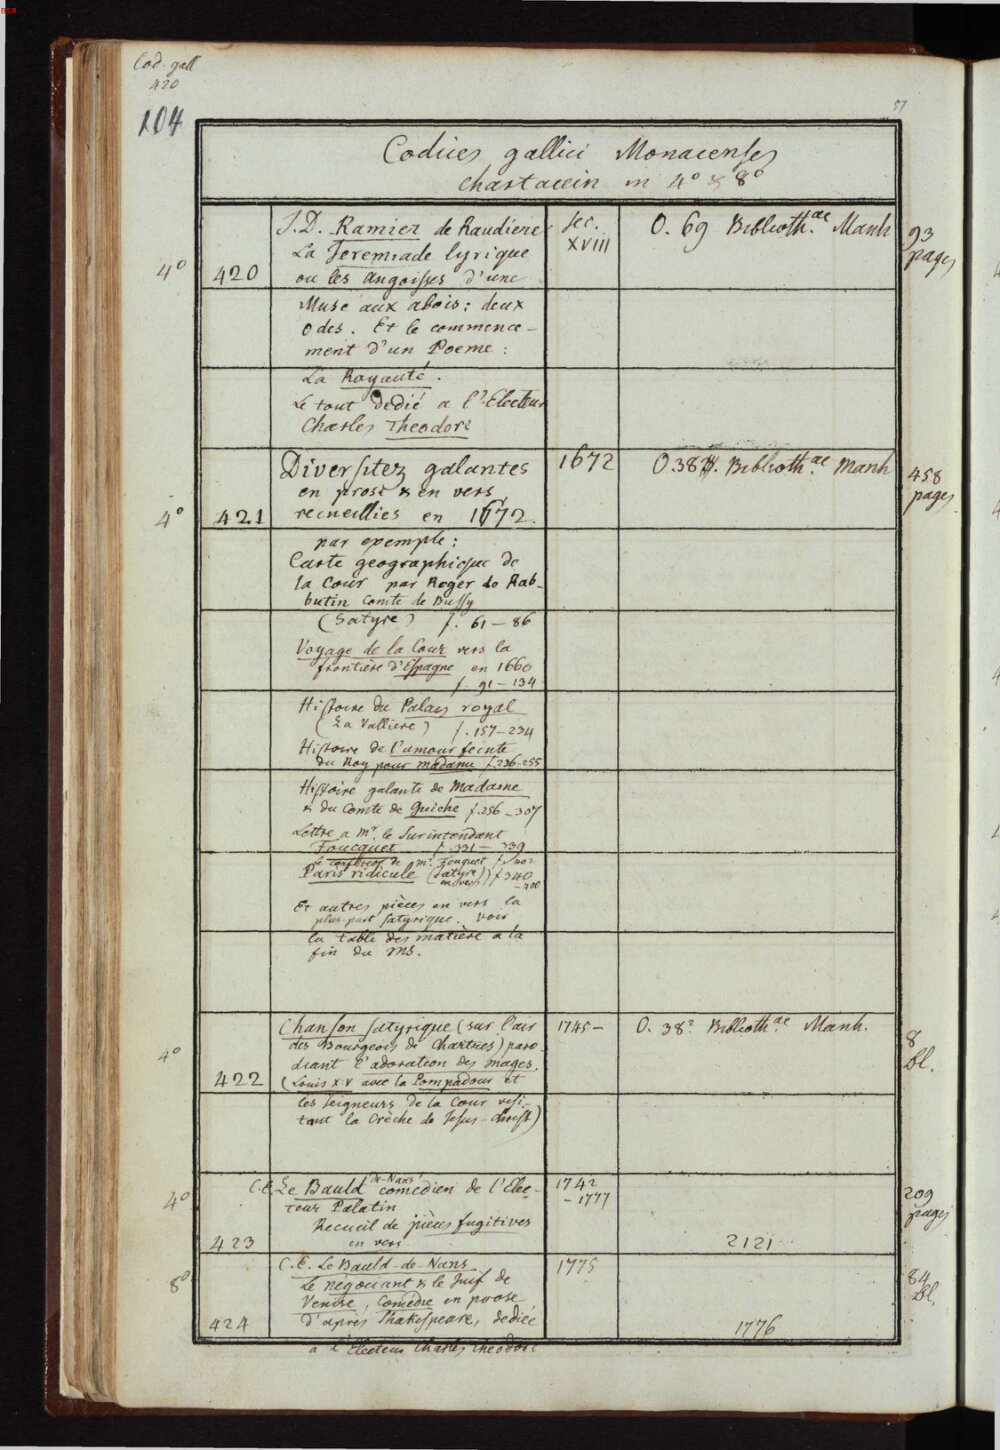 BSB
Cod. gall
420
104
57
Codices gallici Monacenses
chartacein in 4° & 8°
4°
420
J. D. Ramier de Raudiere
La Jeremiade lyrique
ou les Angoisses d'une
Muse aux abois: deux
Odes. Et le commence-
ment d'un Poeme:
La Royauté.
Le tout dedié a l'Electeur
Charles Theodore
sec.
XVIII
O. 69 Biblioth.ae Manh
93
pages
4°
421
Diversitez galantes
en prose & en vers
recueillies en 1672.
par exemple:
Carte geographique de
la Cour par Roger de Rab-
butin Comte de Bussy
(Satyre) f. 61 – 86
Voyage de la Cour vers la
frontière d'Espagne en 1660
f. 91 – 134
Histoire du Palais royal
(La Valliere) f. 157 – 234
Histoire de l'amour feinte
du Roy pour madame f. 236-255
Histoire galante de Madame
& du Comte de Guiche f. 256 – 307
Lettre a Mr. le Surintendant
Foucquet f. 331 – 339
Le confiteor de Mr. Fouquet f. 402
Paris ridicule (Satyre en vers) f. 340
– 400
Et autres pièces en vers la
plus-part satyrique. voir
la table des matière a la
fin du MS.
1672
O. 38 Biblioth.ae Manh
458
pages
4°
422
Chanson satyrique (sur l'air
des Bourgeois de Chartres) paro-
diant l'adoration des mages.
(Louis XV avec la Pompadour et
les Seigneurs de la Cour visi-
tant la Crèche de Jesus-Christ)
1745 –
O. 38 Biblioth.ae Manh.
8
Bl.
4°
423
C. E. Le Bauld de-Nans comédien de l'Elec-
teur Palatin
Recueil de pièces fugitives
en vers
1742
– 1777
2121
209
pages
8°
424
C. E. Le Bauld-de-Nans
Le négociant & le Juif de
Venise, Comedie en prose
d'après Shakespeare, dédiée
a l'Electeur Charles Theodore
1775
1776
84
Bl.